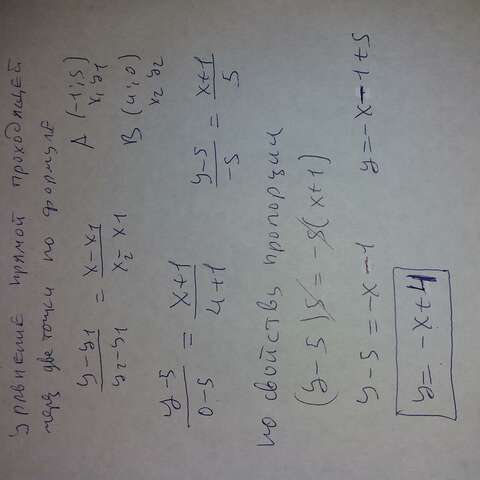 уравнение прямой проходящей
через две точки по формуле
A (-1; 5)
x1 y1
B (4; 0)
x2 y2
(y-y1)/(y2-y1) = (x-x1)/(x2-x1)
(y-5)/(0-5) = (x+1)/(4+1)
(y-5)/-5 = (x+1)/5
по свойству пропорции
(y-5)5 = -5(x+1)
y-5 = -x-1
y = -x-1+5
y = -x+4